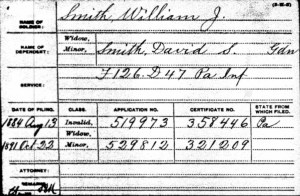 (3-216-a)
NAME OF SOLDIER: Smith, William J.
NAME OF DEPENDENT: Widow,
Minor, Smith, David S. Gdn
SERVICE: F 126. D 47 Pa Inf
DATE OF FILING. CLASS. APPLICATION NO. CERTIFICATE NO. STATE FROM WHICH FILED.
1884 Aug 13 Invalid, 519973 358446 Pa
Widow,
1891 Oct 22 Minor, 529812 321209
ATTORNEY:
REMARKS: